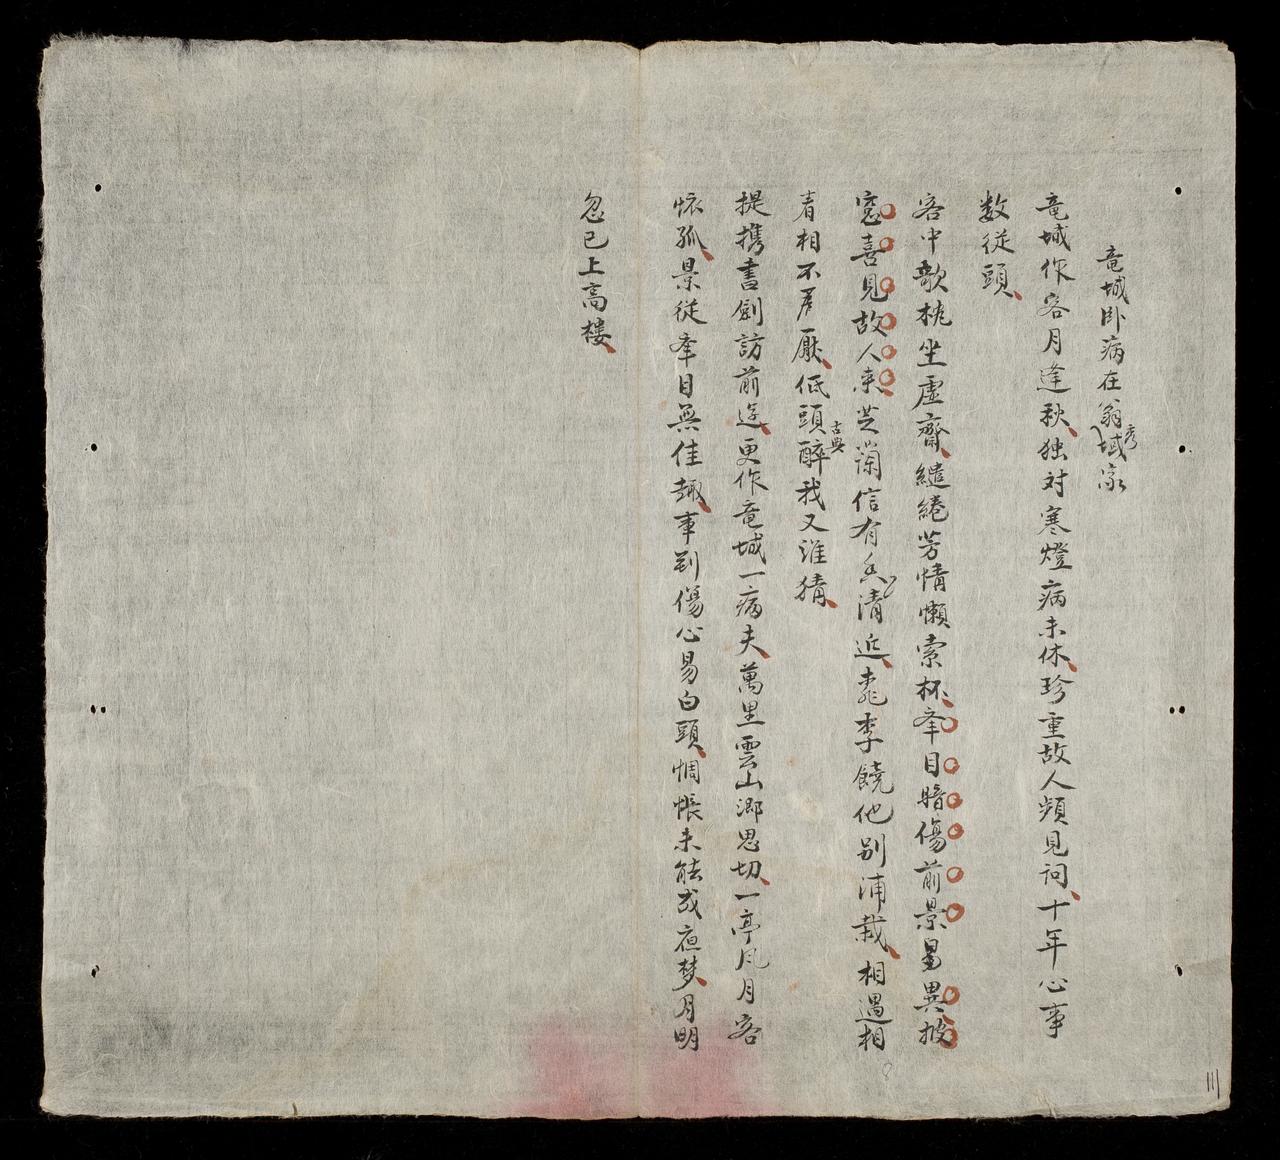 竜城卧病在翁彦城家
竜城作客月逢秋独对寒燈病未休珍重故人頻見问十年心事
数従頭
客中欹枕坐虛齋繾綣芳情懶索杯夆目暗傷前景異披
窓喜見故人来芝蘭信有清近桃李饒他别浦栽相遇相
看相不厭低頭醉我又誰猜
古典
提携書劍訪前途更作竜城一病夫萬里雲山鄉思切一亭风月客
怀孤景従夆目無佳趣事到傷心易白頭惆悵未能成夜梦月明
忽已上高楼